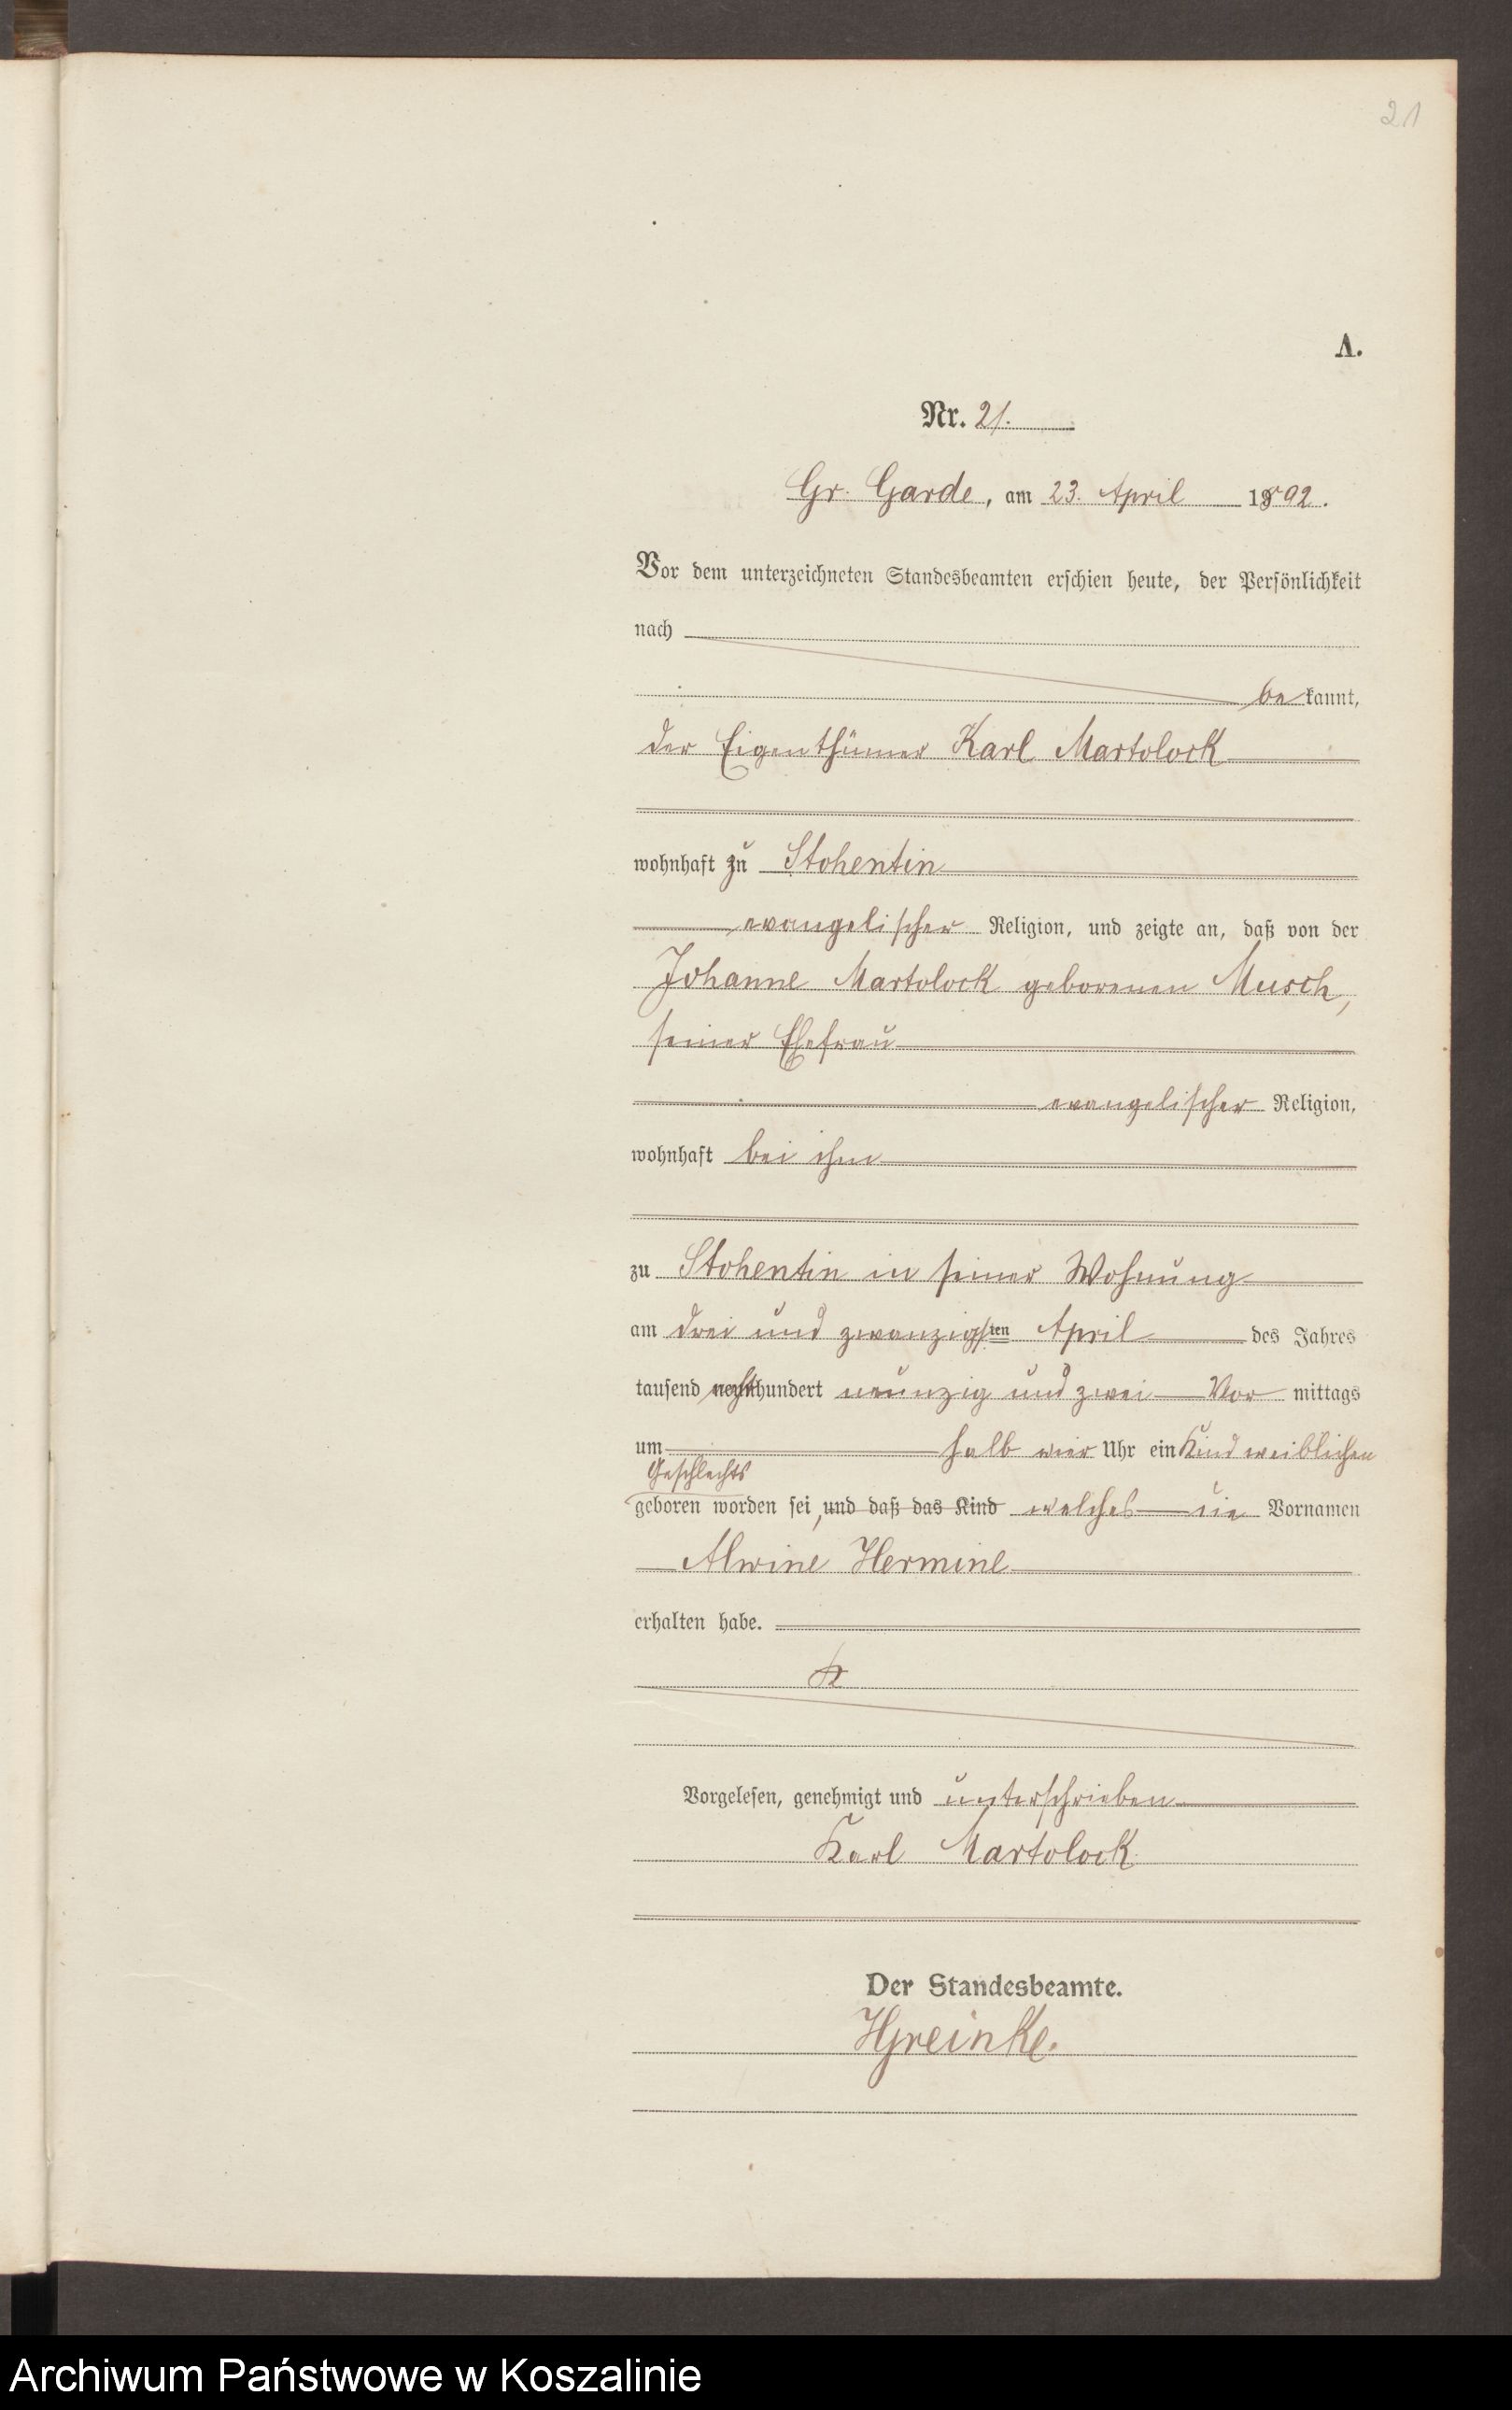 21
A.
Nr. 21.
Gr. Garde, am 23. April 1892.
Vor dem unterzeichneten Standesbeamten erschien heute, der Persönlichkeit
nach
be kannt,
der Eigenthümer Karl Martolock
wohnhaft zu Stohentin
evangelischer Religion, und zeigte an, daß von der
Johanne Martolock geborenen Musch,
seiner Ehefrau
evangelischer Religion,
wohnhaft bei ihm
zu Stohentin in seiner Wohnung
am drei und zwanzigsten April des Jahres
tausend achthundert neunzig und zwei Vor mittags
um halb vier Uhr ein Kind weiblichen
Geschlechts
geboren worden sei, und daß das Kind welches die Vornamen
Alwine Hermine
erhalten habe.
Vorgelesen, genehmigt und unterschrieben
Karl Martolock
Der Standesbeamte.
HGreinke.
Archiwum Państwowe w Koszalinie